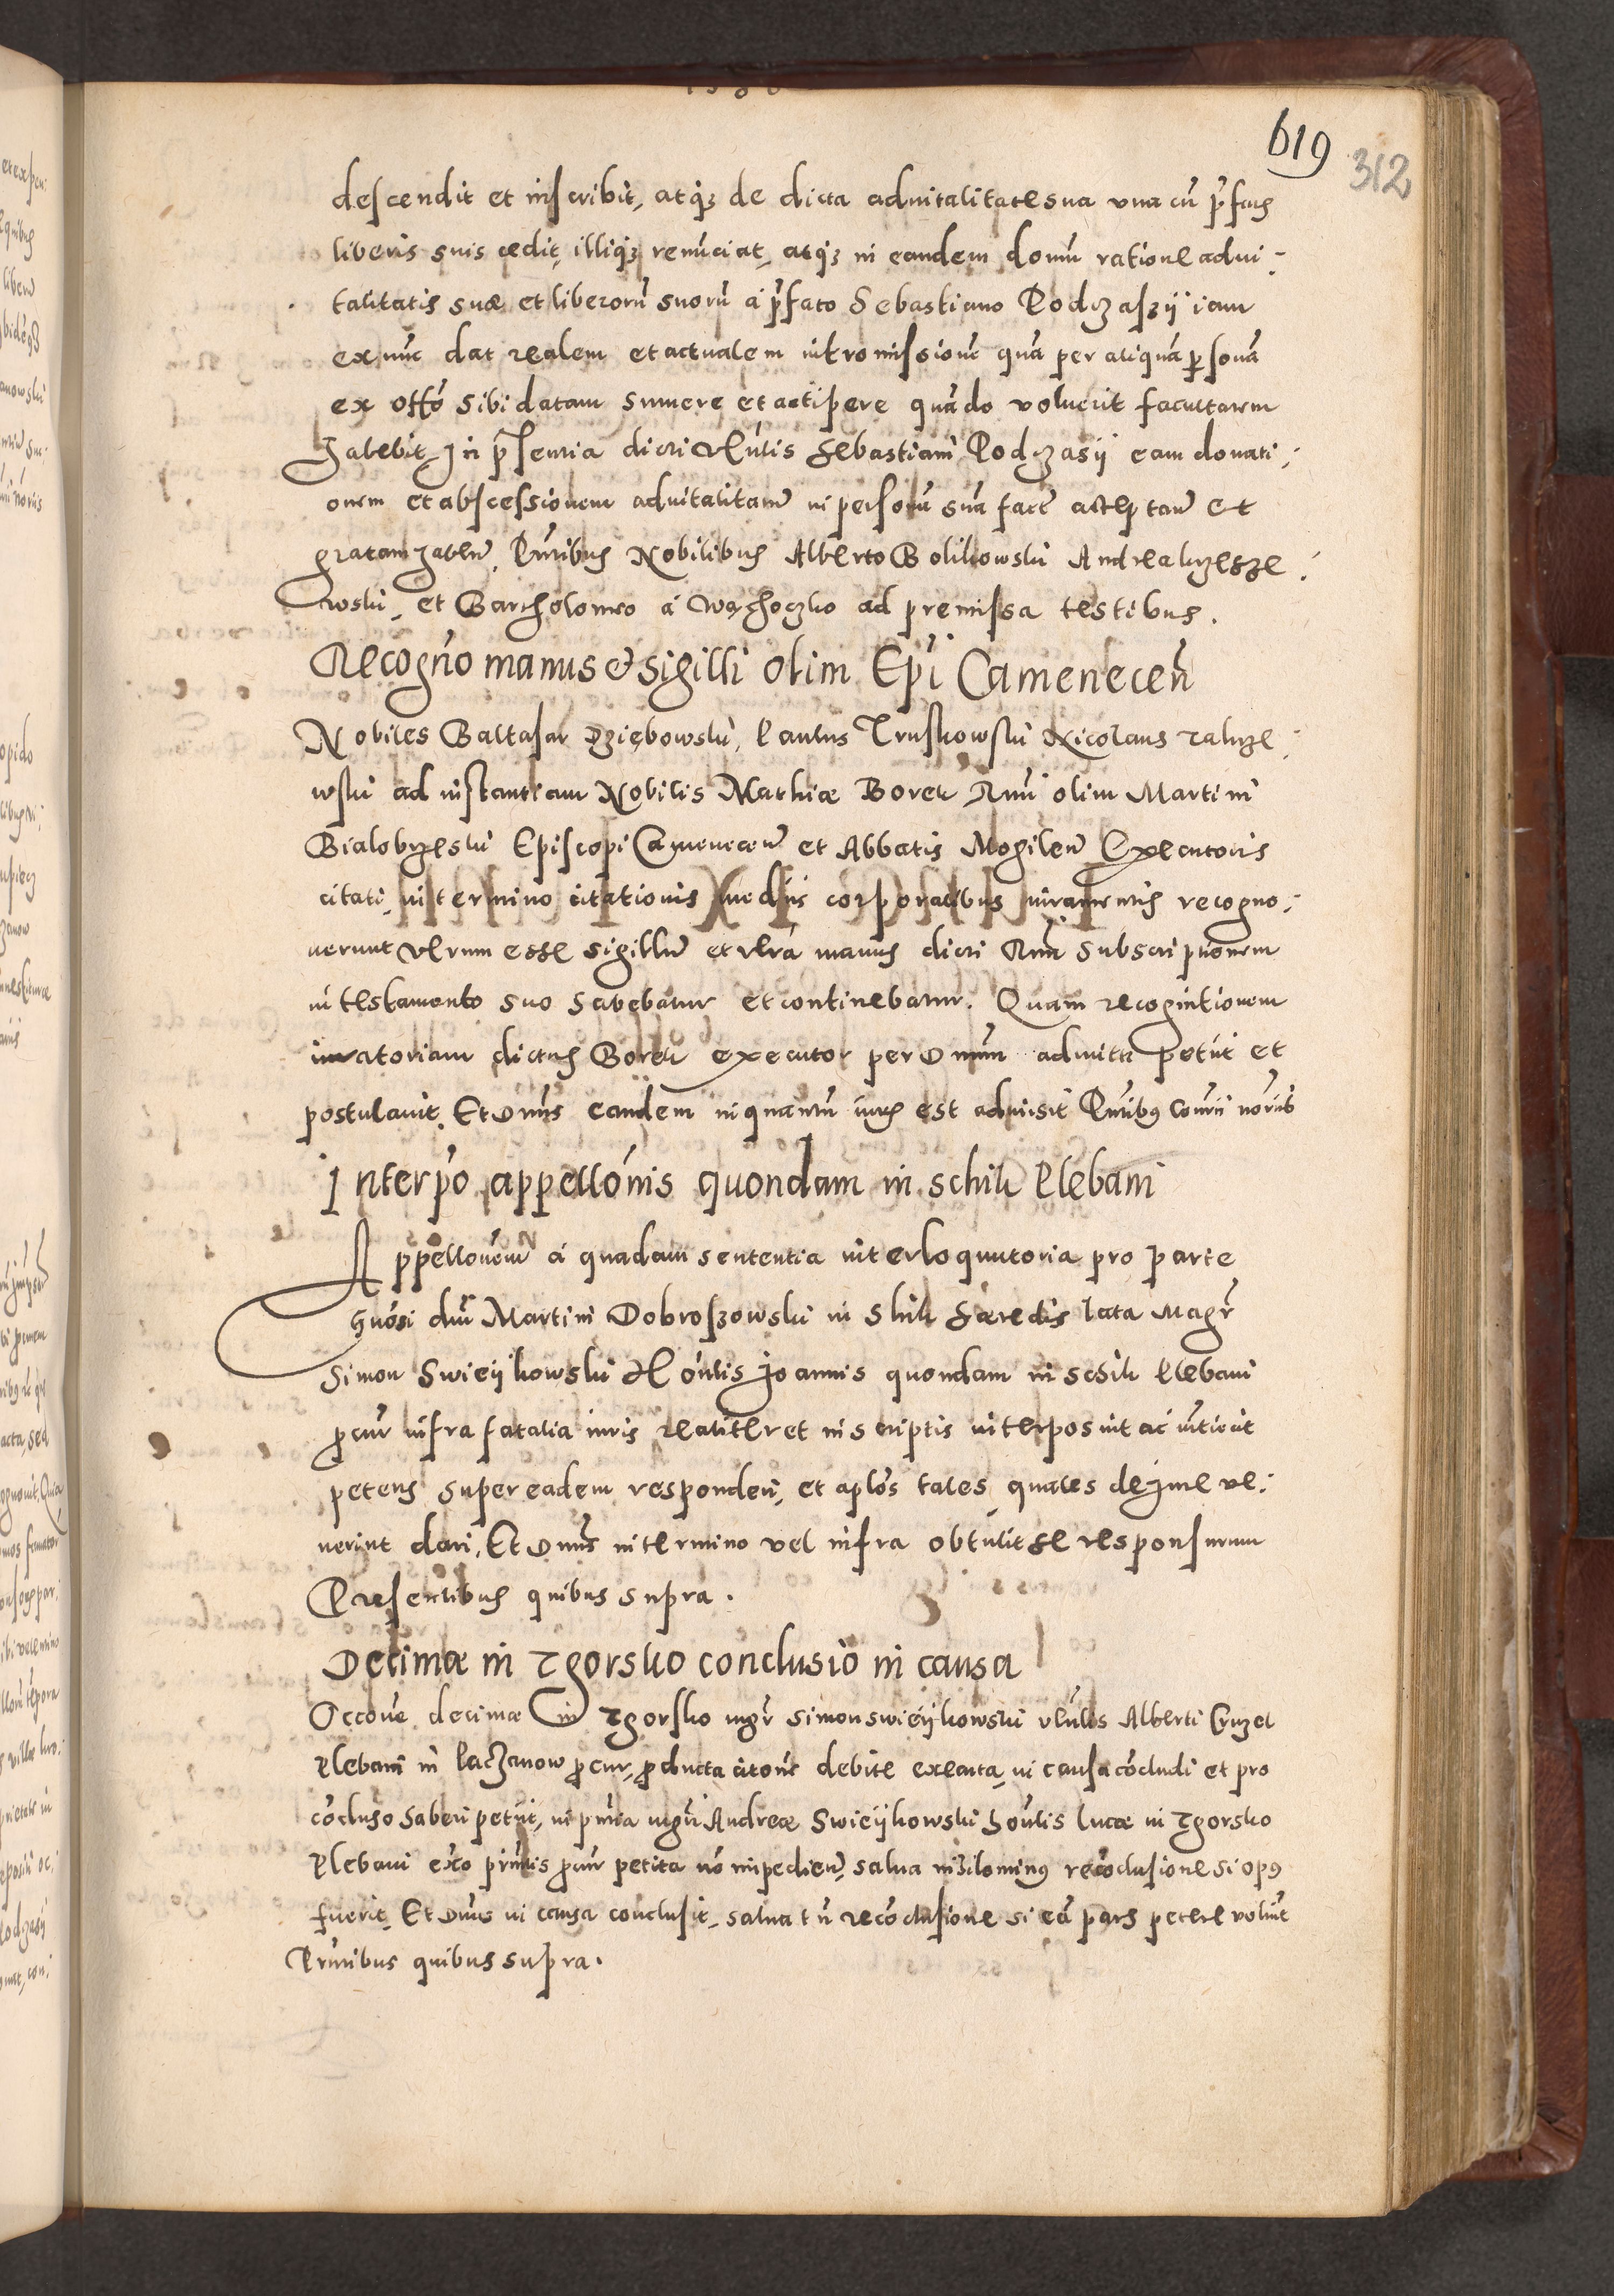 619
312
descendit et inscribit, atq3 de dicta aduitalitate sua vna cū p̄fatis
liberis suis cedit, illiq3 renūciat, atq3 in eandem domū ratione adui:
talitatis suæ et liberorū suorū á p̄fato Sebastiano Podgaszÿ iam
ex nūc dat realem et actualem intromissionē quā per aliquā p̱sonā
ex offō sibi datam sumere et accipere quādo voluerit facultatem
habebit, In p̄sentia dicti Vēnlis Sebastiani Podgasÿ eam donati:
onem et abscessionem aduitalitatē in personā suā factā acceptan̄ et
gratam haben̄. Pn̄tibus Nobilibus Alberto Bolikowski Andrea krzesze:
wski, et Bartholomeo á Wąchoczko ad premissa testibus.
Recogn̄o manus et sigilli olim Ep̄i Camenecen̄
Nobiles Baltasar Dziębowski, Paulus Truskowski Nicolaus zakrze:
wski ad instantiam Nobilis Mathiæ Borek Rn̄di olim Martini
Bialobrzeski Episcopi Camenecen̄ et Abbatis Mogilen̄ Executoris
citati, in termino citationis medijs corporalibus iuramentis recogno:
uerunt verum esse sigillū et verā manus dicti Rn̄di subscriptionem
in testamento suo habebatur et continebatur. Quam recognitionem
iuratoriam dictus Borek executor per Dn̄um admitti petÿt et
postulauit, Et Dn̄us eandem in quantū iuris est admisit Pn̄tibq Cōurii nōrijs
Interp̄o appellōnis quondam in schik Plebani
Appellōnem á quadam sententia interloquutoria pro parte
Gn̄osi dn̄i Martini Dobroszowski in Shik hæredis lata Magr̄
Simon Swieÿkowski Hōnlis Joannis quondam in schik Plebani
p̱cur infra fatalia iuris realiter et in scriptis interposuit ac intimat
petens super eadem responderi, et aplōs tales, quales de jure ue:
nerint dari, Et Dn̄us in termino vel infra obtulit se responsurum
Præsentibus quibus supra.
Decimæ in Zgorsko conclusio in causa
Occōne decimæ in Zgorsko mgr̄ Simon Swieÿkowski vēnlis Alberti Cruzel
Plebani in Laczanow p̱cur, p̱ducta citōne debite executa, in causa cōcludi et pro
cōcluso haberi petÿt, in pn̄tia mgr̄i Andreæ Swieÿkowski hōnlis Lucæ in Zgorsko
Plebani ex̄o prin̄lis p̱cur petita nō impedien̄, salua nihilominq recōclusione si opq
fuerit, Et Dn̄us in causa conclusit, salua tn̄ recōclusione si eā pars petere voluīt
Pn̄tibus quibus supra.